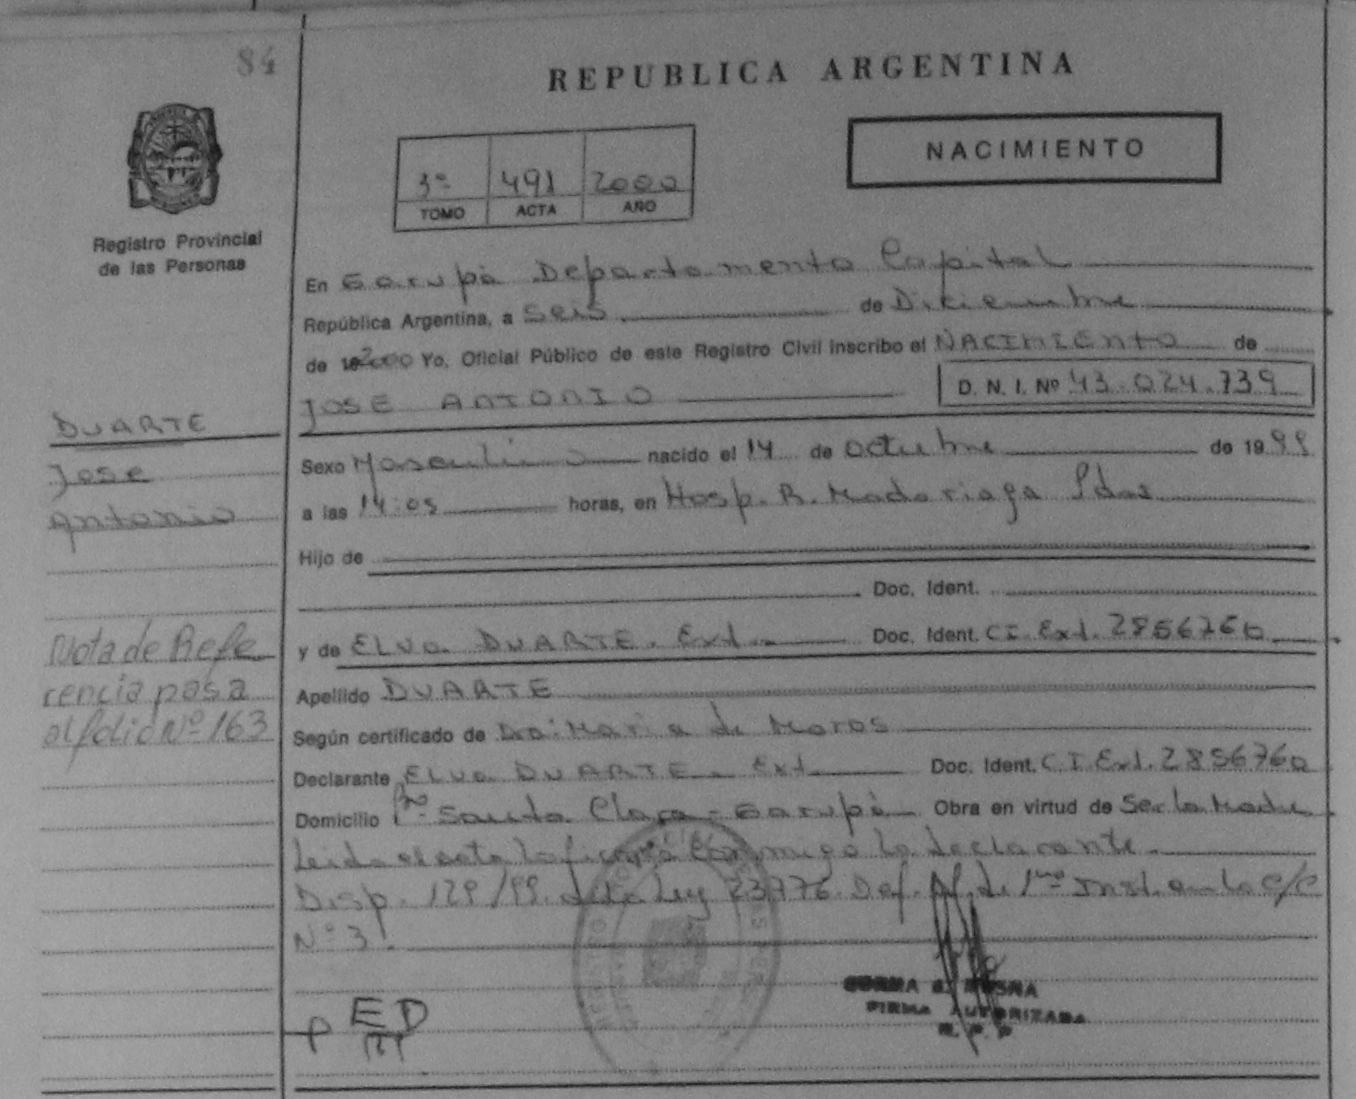 84
REPUBLICA ARGENTINA
NACIMIENTO
3º 491 2000
TOMO ACTA AÑO
Registro Provincial
de las Personas
En Garupá Departamento Capital
República Argentina, a Seis de Diciembre
de 2000 Yo, Oficial Público de este Registro Civil inscribo el NACIMIENTO de
JOSE ANTONIO D. N. I. Nº 43.024.739
DUARTE
Jose
Antonio
Sexo Masculino nacido el 14 de octubre de 1999
a las 14:05 horas, en Hosp. R. Madariaga Pdas
Hijo de
Doc. Ident.
y de ELVA DUARTE. Ext. Doc. Ident. CI. Ext. 2856760
Nota de Refe
rencia pasa
al folio Nº 163
Apellido DUARTE
Según certificado de Dra: Maria de Moros
Declarante ELVA DUARTE Ext Doc. Ident. C.I. Ext. 2856760
Domicilio Bº Santa Clara - Garupá Obra en virtud de Ser la Madre
Leida el acta la firma conmigo la declarante.
Disp. 129/99 de la Ley 23776 Def. Of. de 1ra Inst. en lo C/C
Nº 3!
FIRMA AUTORIZADA
R. P. P
P ED